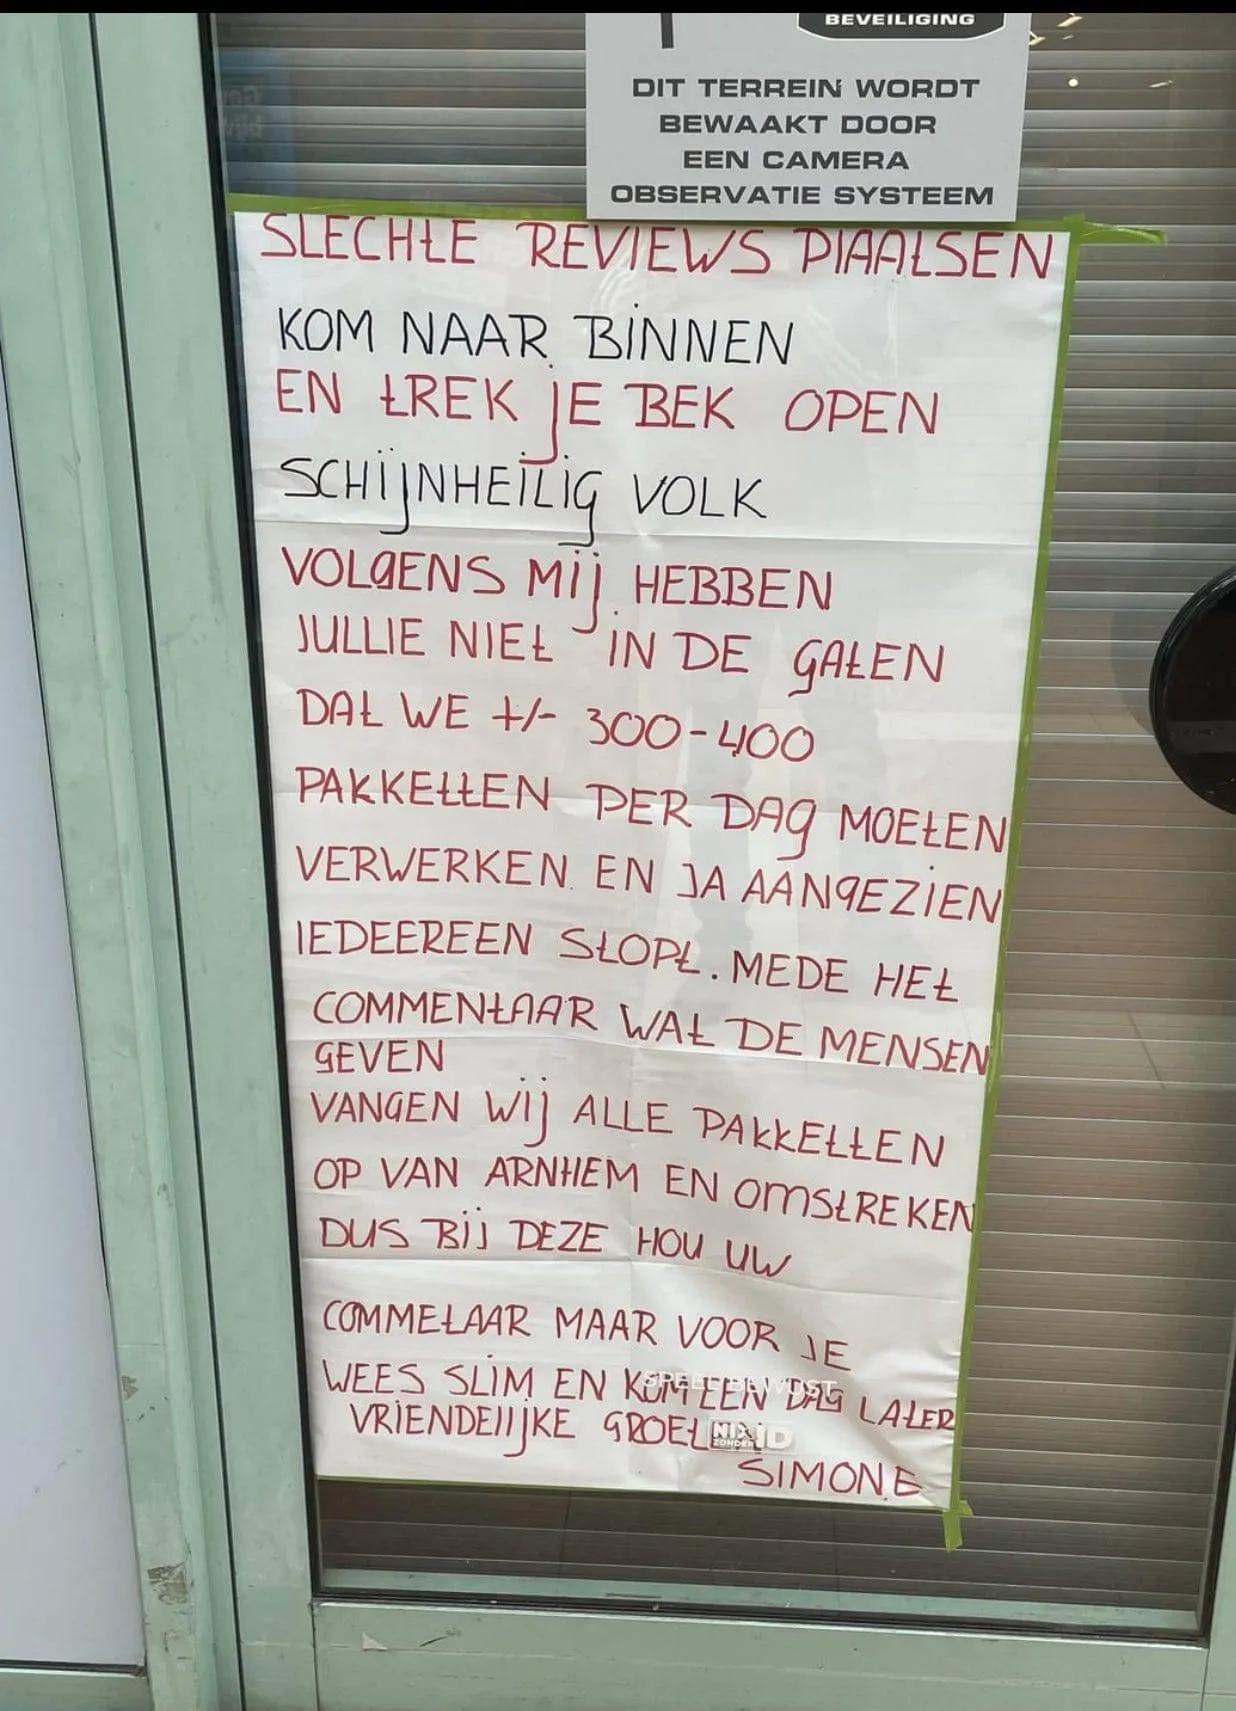 BEVEILIGING
DIT TERREIN WORDT
BEWAAKT DOOR
EEN CAMERA
OBSERVATIE SYSTEEM
SLECHTE REVIEWS PLAATSEN
KOM NAAR BINNEN
EN TREK JE BEK OPEN
SCHIJNHEILIG VOLK
VOLGENS MIJ HEBBEN
JULLIE NIET IN DE GATEN
DAT WE +/- 300-400
PAKKETTEN PER DAG MOETEN
VERWERKEN. EN JA AANGEZIEN
IEDEEREEN STOPT. MEDE HET
COMMENTAAR WAT DE MENSEN
GEVEN
VANGEN WIJ ALLE PAKKETTEN
OP VAN ARNHEM EN OMSTREKEN
DUS BIJ DEZE HOU UW
COMMETAAR MAAR VOOR JE
WEES SLIM EN KOM EEN DAG LATER
SPEED BEWUST
VRIENDELIJKE GROET
NIX ZONDER ID
SIMONE